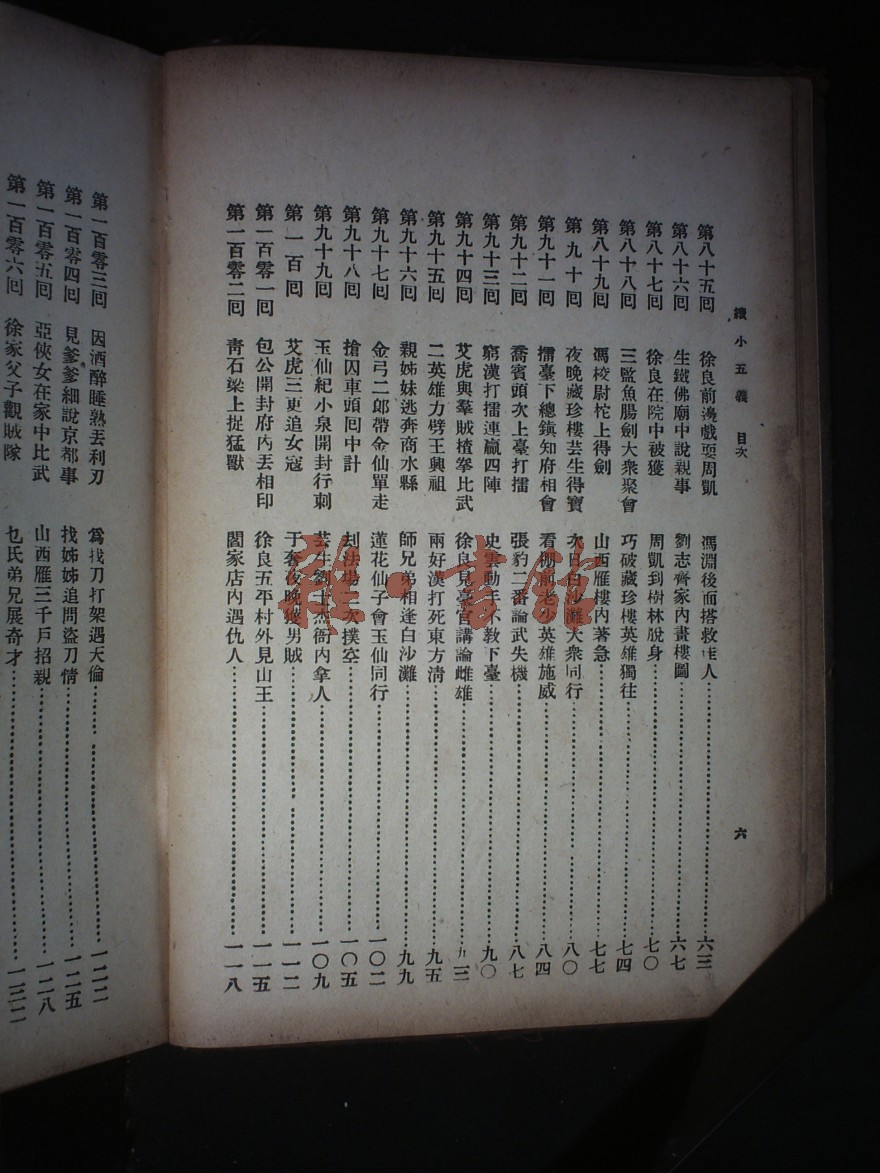 續小五義　目次
六
第八十五囘　徐良前邊戲耍周凱　馮淵後面搭救佳人……六三
第八十六囘　生鐵佛廟中說親事　劉志齊家內畫樓圖……六七
第八十七囘　徐良在院中被獲　周凱到樹林脫身……七〇
第八十八囘　三盜魚腸劍大衆聚會　巧破藏珍樓英雄獨往……七四
第八十九囘　馮校尉柁上得劍　山西雁樓內著急……七七
第九十囘　夜晚藏珍樓芸生得寶　次日白沙灘大衆同行……八〇
第九十一囘　擂臺下總鎭知府相會　看棚前老少英雄施威……八四
第九十二囘　喬賓頭次上臺打擂　張豹二番論武失機……八七
第九十三囘　窮漢打擂連贏四陣　史雲動手不敎下臺……九〇
第九十四囘　艾虎與羣賊揸拳比武　徐良見臺官講論雌雄……九三
第九十五囘　二英雄力劈王興祖　兩好漢打死東方淸……九五
第九十六囘　親姊妹逃奔商水縣　師兄弟相逢白沙灘……九九
第九十七囘　金弓二郎帶金仙單走　蓮花仙子會玉仙同行……一〇二
第九十八囘　搶囚車頭囘中計　刦法場二次撲空……一〇五
第九十九囘　玉仙紀小泉開封行刺　芸生劉士杰衙內拿人……一〇九
第一百囘　艾虎三更追女寇　于奢夜晚獲男賊……一一二
第一百零一囘　包公開封府內丟相印　徐良五平村外見山王……一一五
第一百零二囘　靑石梁上捉猛獸　閻家店內遇仇人……一一八
第一百零三囘　因酒醉睡熟丟利刃　爲找刀打架遇天倫……一二二
第一百零四囘　見爹爹細說京都事　找姊姊追問盜刀情……一二五
第一百零五囘　亞俠女在家中比武　山西雁三千戶招親……一二八
第一百零六囘　徐家父子觀賊隊　乜氏弟兄展奇才……一三二
雅·書館